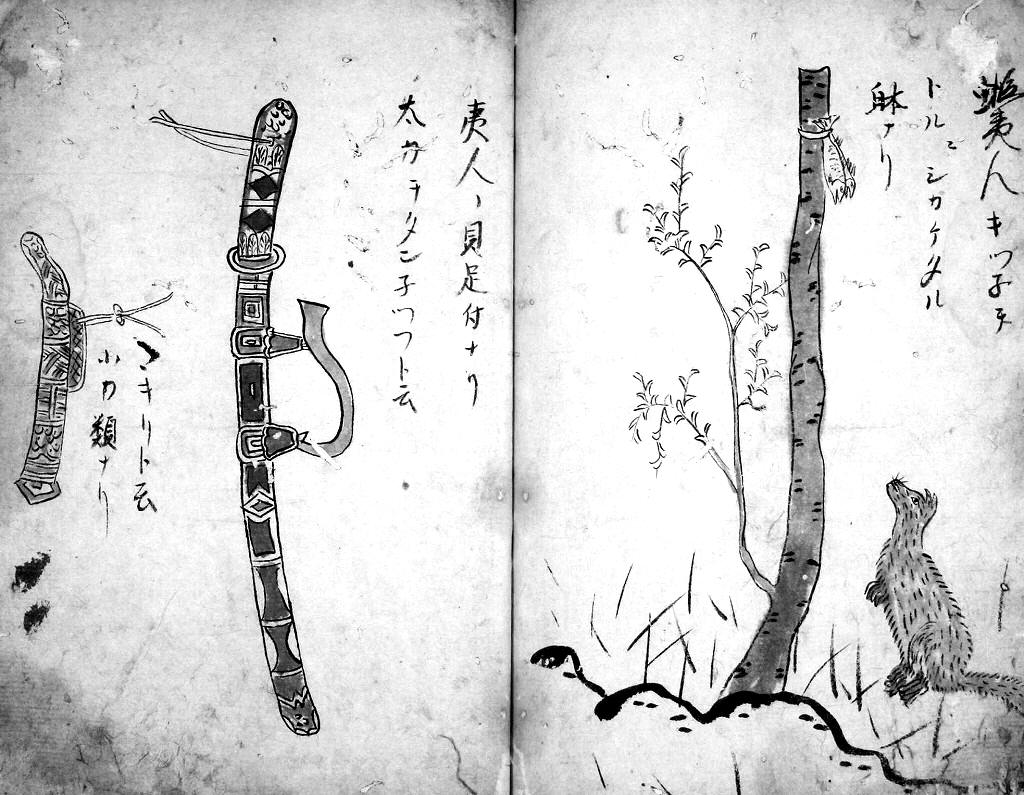 蝦夷人キツネヲ
トルニシカケタル
躰ナリ
夷人ノ具足付ナリ
太刀ヲタン子ツフト云
マキリト云
小刀類ナリ